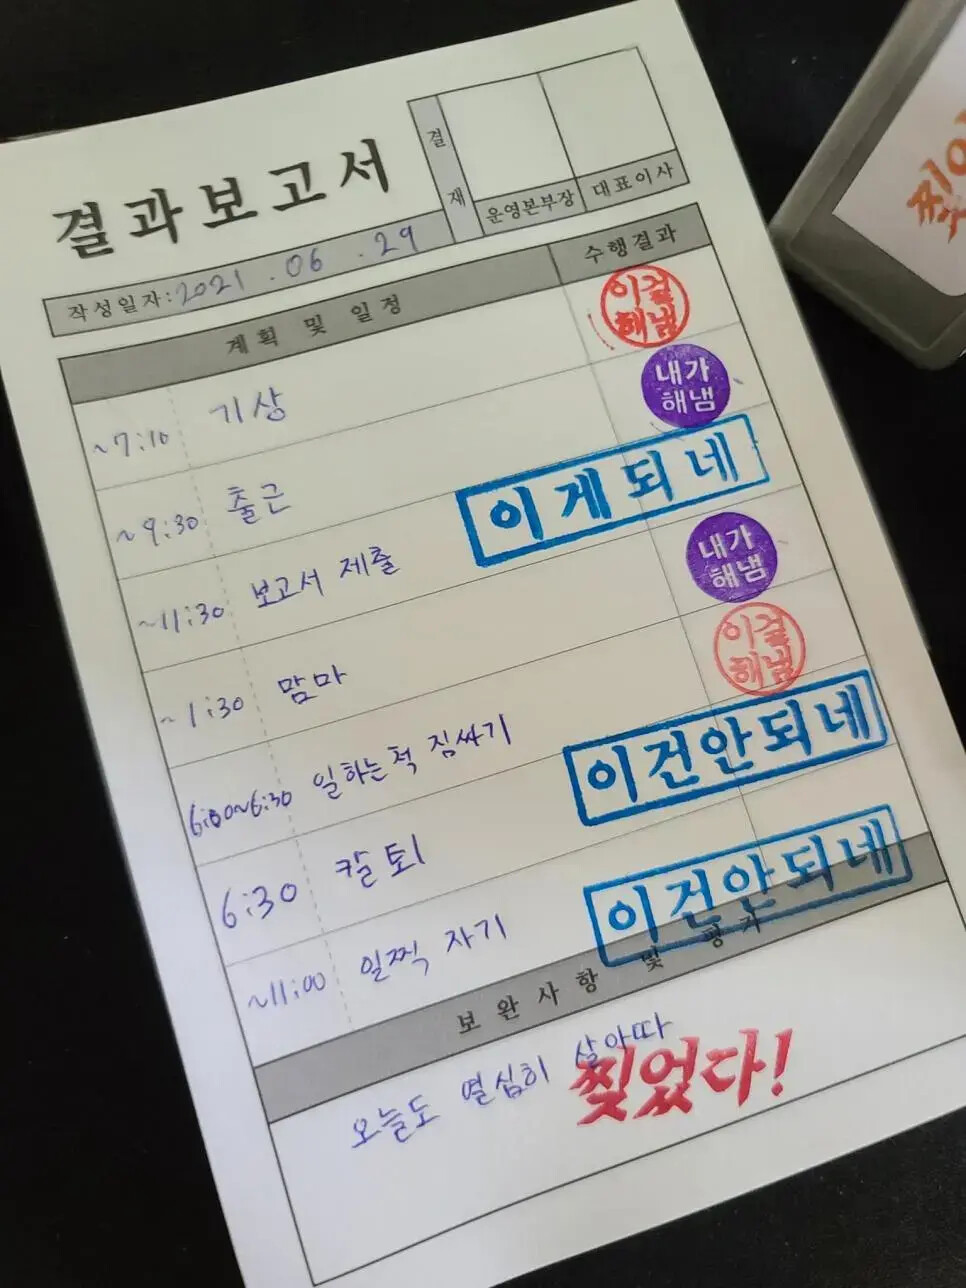 결재
운영본부장 대표이사
결과보고서
작성일자: 2021.06.29
계획 및 일정 수행결과
~7:10 기상 이걸해냄
~9:30 출근 내가해냄
~11:30 보고서 제출 이게되네
~1:30 맘마 내가해냄
6:00~6:30 일하는척 짐싸기 이걸해냄
6:30 칼퇴 이건안되네
~11:00 일찍 자기 이건안되네
보완사항 및 평가
오늘도 열심히 살아따
찢었다!